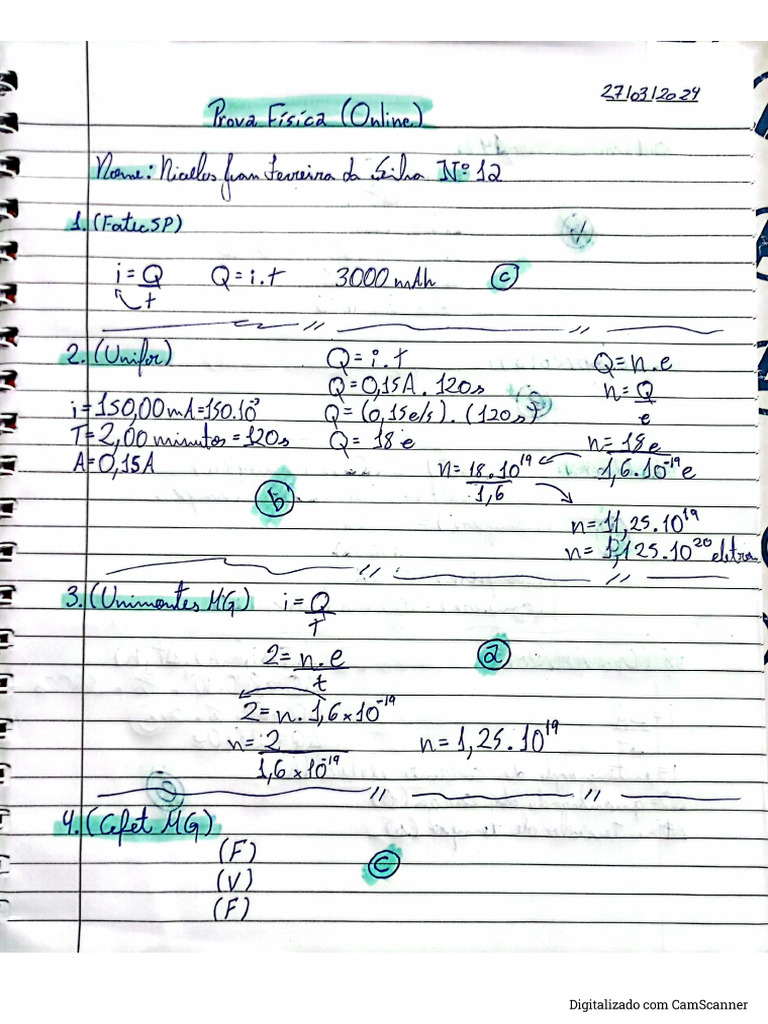 27/03/2024
Prova Física (Online)
Nome: Ferreira da Silva Nº 12
1. (Fatec SP)
i = Q/t Q = i.t 3000 mAh c
2. (Unifor)
i = 150,00 mA = 150.10⁻³
T = 2,00 minutos = 120s
A = 0,15A
Q = i.t
Q = 0,15A . 120s
Q = (0,15e/s) . (120s)
Q = 18 e
Q = n.e
n = Q/e
n = 18e/1,6.10⁻¹⁹e
n = 18.10¹⁹/1,6
n = 11,25.10¹⁹
n = 1,125.10²⁰
b
3. (Unimontes MG) i = Q/T
2 = n.e/t
2 = n. 1,6 x 10⁻¹⁹
n = 2/1,6 x 10⁻¹⁹ n = 1,25.10¹⁹
4. (Cefet MG)
(F)
(V) c
(F)
Digitalizado com CamScanner